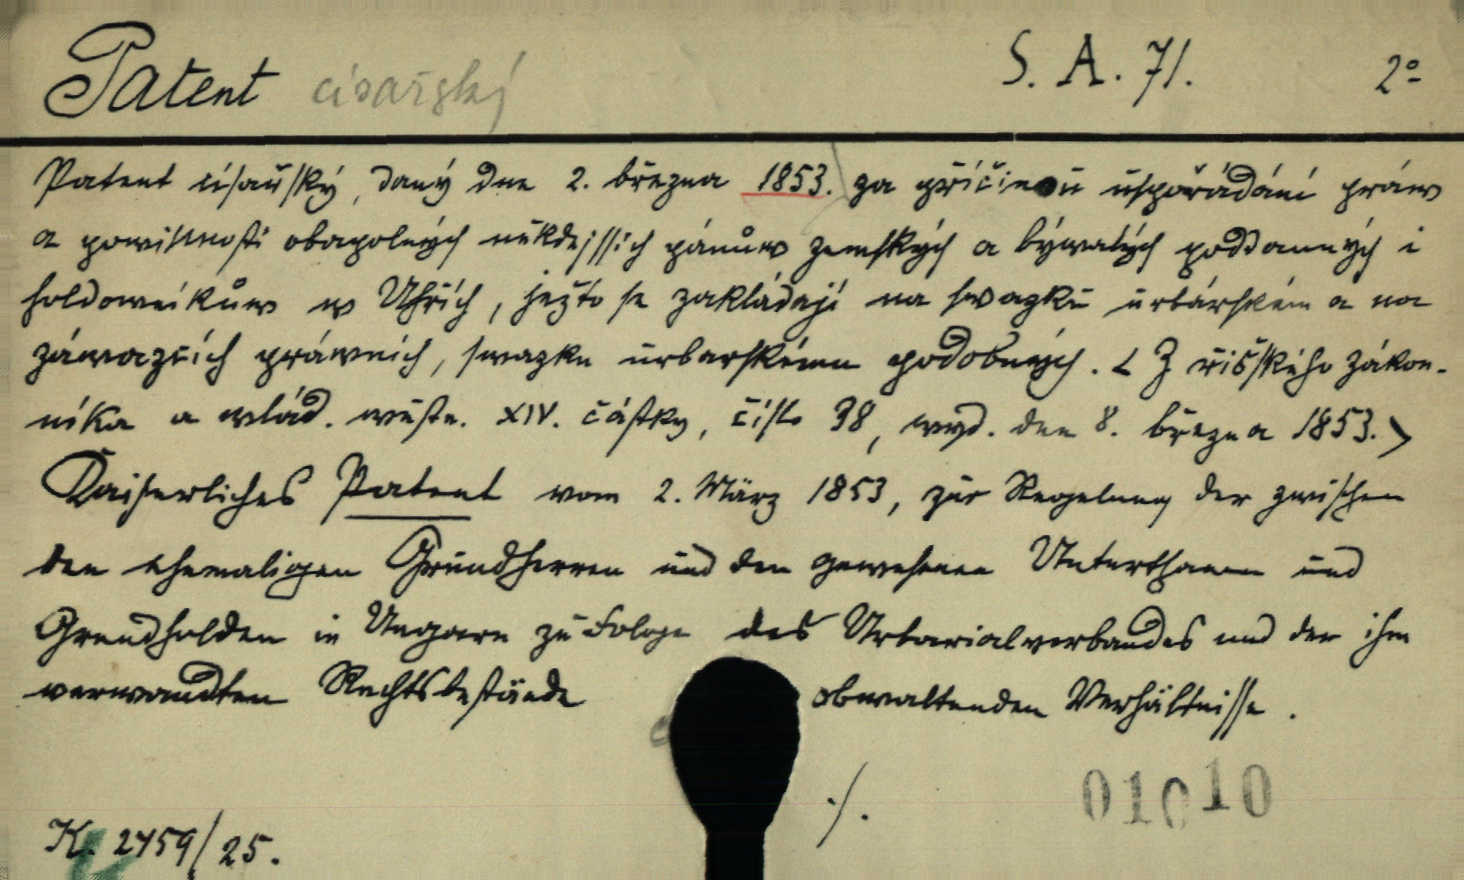 Patent císařský S. A. 71. 2º
Patent císařský, daný dne 2. března 1853. za příčinou uspořádání práw
a powinností obapolných někdejších pánůw zemských a býwalých poddaných i
holdowníkůw w Uhřích, ježto se zakládají na swazku urbárském a na
záwazcích práwních, swazku urbarskému podobných. < Z říšského Zákon-
níka a wlád. wěstn. XIV. částky, číslo 38, wyd. dne 8. března 1853. >
Kaiserliches Patent vom 2. März 1853, zur Regelung der zwischen
den ehemaligen Grundherren und den gewesenen Unterthanen und
Grundholden in Ungarn zu Folge des Urbarialverbandes und der ihm
verwandten Rechtsbestände obwaltenden Verhältnisse.
./.
01010
K. 2459/25.